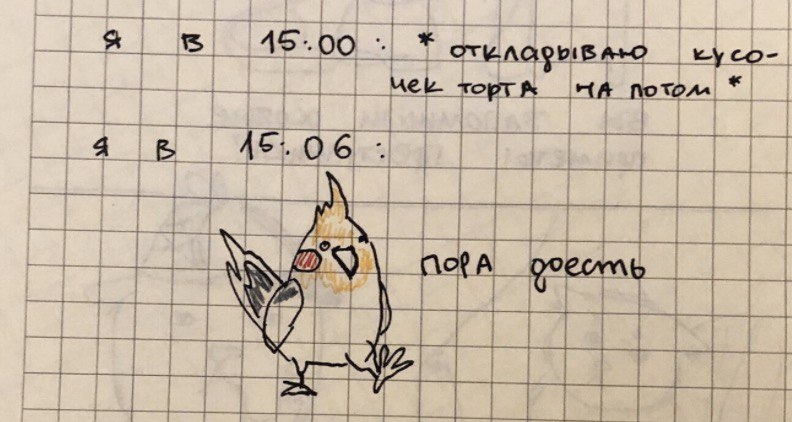 я в 15:00: * откладываю кусо-
чек торта на потом *
я в 15:06:
пора доесть